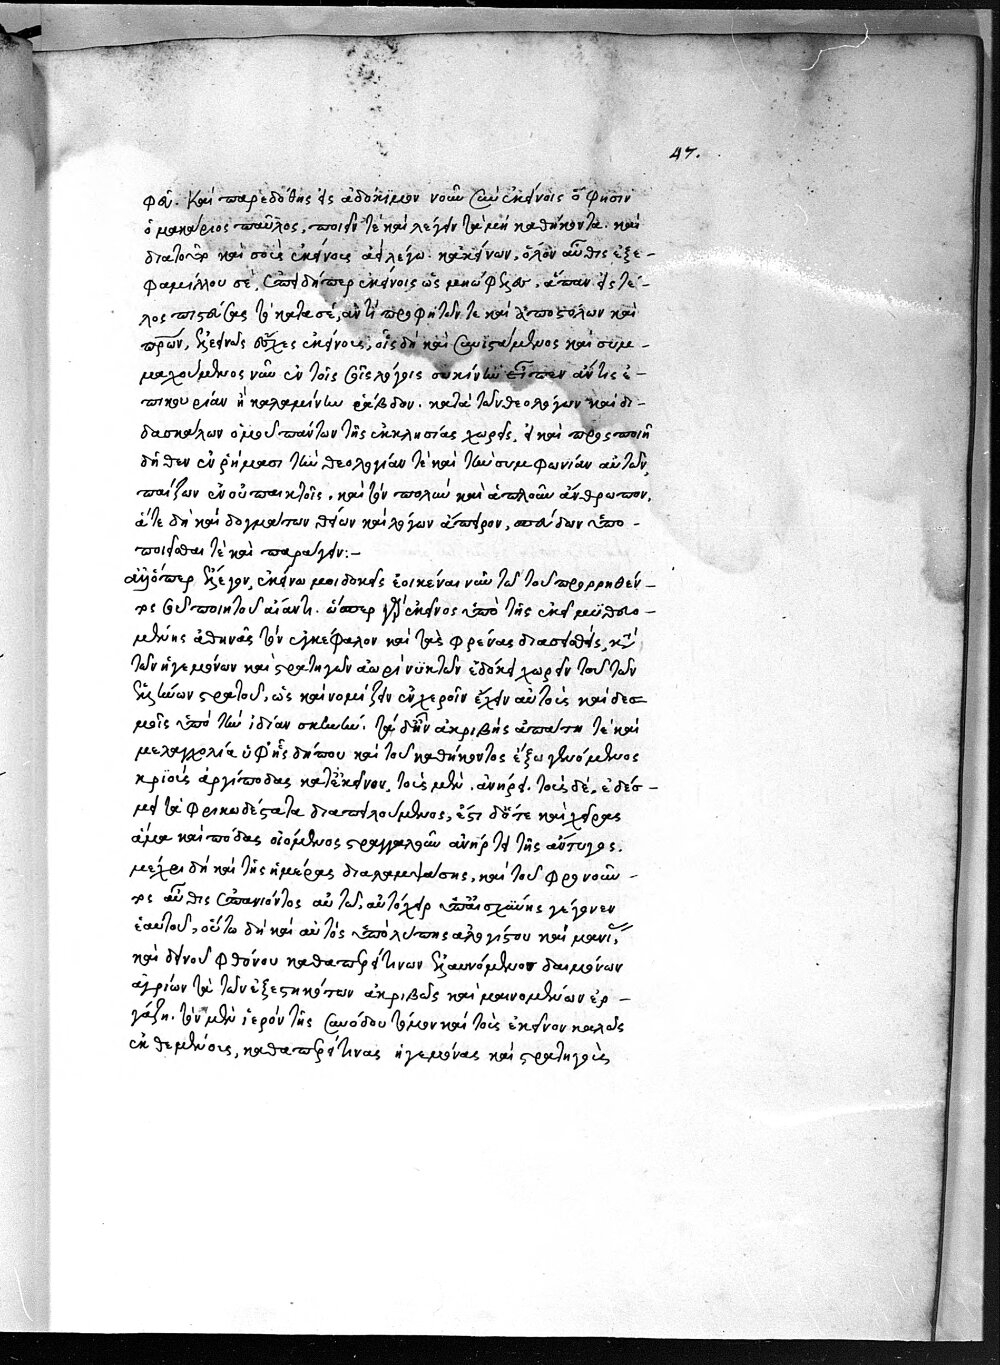 47.
φοῦ. Καὶ παρεδόθης εἰς ἀδόκιμον νοῦν σὺν ἐκείνοις ὅ φησιν
ὁ μακάριος παῦλος, ποιεῖν τὲ καὶ λέγειν τὰ μὴ καθήκοντα. καὶ
διατοῦτο καὶ σοῖς ἐκείνοις λέγω κἀκείνων, ὅλον αὖθις ἐξε-
φαμίλλου σέ, ἐπειδήπερ ἐκείνοις ὡς ἅπαν εἰς τέ-
λος πιστεύσας τὸ κατὰ σέ, ἀντὶ προφητῶν τε καὶ ἀποστόλων καὶ
πατέρων, ἐκείνους, οἷς δὴ καὶ συνιστάμενος καὶ συμ-
μαχούμενος νῦν ἐν τοῖς λόγοις συκίνην εἶπεν ἄν τις ἐ-
πικουρίαν ἢ καλαμίνην ῥάβδον. κατὰ τῶν θεολόγων καὶ δι-
δασκάλων ὁμοῦ πάντων τῆς ἐκκλησίας χωρεῖς, εἰ καὶ προσποιῇ
δῆθεν ἐν ῥήμασι τὴν θεολογίαν τὲ καὶ τὴν συμφωνίαν αὐτῶν,
παίζων ἐν οὐ παικτοῖς. καὶ τὸν πολὺν καὶ ἁπλοῦν ἄνθρωπον,
ἅτε δὴ καὶ δογμάτων θείων καὶ λόγων ἄπειρον, σπεύδων ὑπο-
ποιεῖσθαι τὲ καὶ παράγειν:-
ὅπερ ἔλεγον, ἐκείνω μοι δοκεῖς ἐοικέναι νῦν τῶ τοῦ προρρηθέν-
τος ποιητοῦ αἴαντι. ὥσπερ γὰρ ἐκεῖνος ὑπὸ τῆς ἐκεῖ μυθευο-
μένης ἀθηνᾶς τὸν ἐγκέφαλον καὶ τὰς φρένας διασεισθείς, κατὰ
τῶν ἡγεμόνων καὶ στρατηγῶν ἀωρὶ νυκτῶν ἐδόκει χωρεῖν τοῦ τῶν
ἑλλήνων στρατοῦ, ὡς καὶ νομίζειν ἐν χεροῖν ἔχειν αὐτοὺς καὶ δεσ-
μοῖς ὑπὸ τὴν ἰδίαν σκηνήν. τὰ δ' ἦν ἀκριβὴς ἀπάτη τὲ καὶ
μελαγχολία ὑφῆς δήπου καὶ τοῦ καθήκοντος ἔξω γενόμενος
κριοὺς ἀργίποδας κατέκτεινον, τοὺς μὲν, ἀνῄρει. τοὺς δέ, ἐδέσ-
μει τὰ φρικωδέστατα διαπειλούμενος, ἔστι δ' ὅτε καὶ χεῖρας
ἅμα καὶ πόδας οἰόμενος στραγγαλοῦν ἀνήρτει τῆς ἄντυγος.
μέχρι δὴ καὶ τῆς ἡμέρας διαλαμψάσης, καὶ τοῦ φρονοῦν-
τος αὖθις ἐπανιόντος αὐτῶ, αὐτόχειρ ὑπ' αἰσχύνης γέγονεν
ἑαυτοῦ, οὕτω δὴ καὶ αὐτὸς ὑπὸ λύπης ἀλογίστου καὶ μανίας
καὶ δεινοῦ φθόνου καθαπερεί τινων ἐλαυνόμενος δαιμόνων
ἀγρίων τὰ τῶν ἐξεστηκότων ἀκριβῶς καὶ μαινομένων ἐρ-
γάζη. τὸν μὲν ἱερὸν τῆς συνόδου τόμον καὶ τοὺς ἐκεῖνον καλῶς
ἐκθεμένους, καθαπερεί τινας ἡγεμόνας καὶ στρατηγοὺς